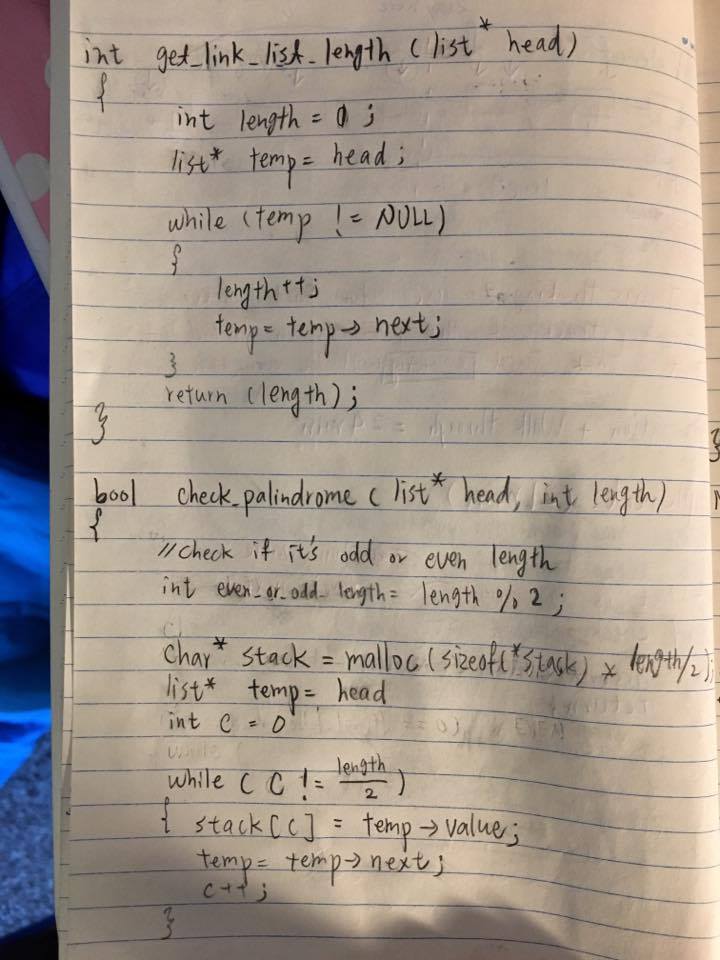 int get_link_list_length (list* head)
{
int length = 0;
list* temp = head;
while (temp != NULL)
{
length++;
temp = temp→next;
}
return (length);
}
bool check_palindrome (list* head, int length)
{
//check if it's odd or even length
int even_or_odd_length = length % 2;
char* stack = malloc(sizeof(*stack) x length/2);
list* temp = head
int c = 0
while (c != length/2)
{ stack[c] = temp→value;
temp = temp→next;
c++;
}